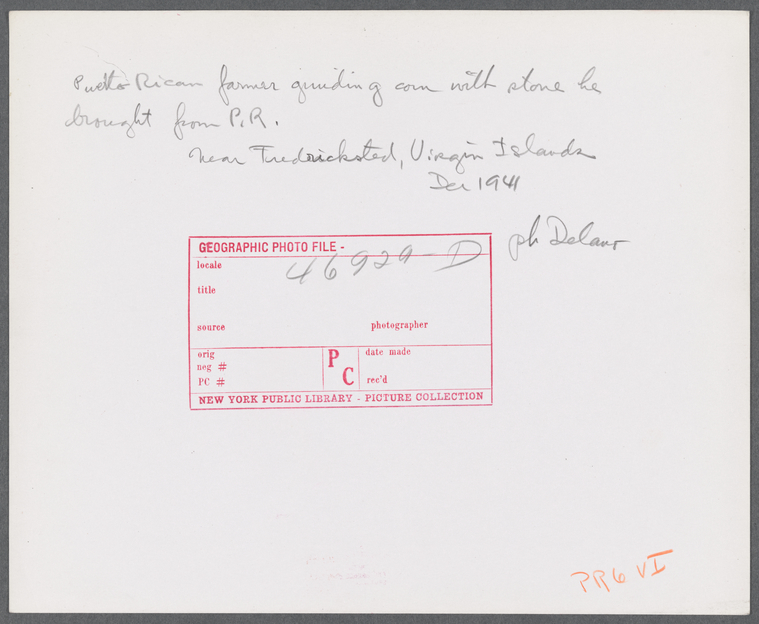 Puerto Rican farmer grinding corn with stone he
brought from P.R.
near Fredricksted, Virgin Islands
Dec 1941
ph Delano
GEOGRAPHIC PHOTO FILE -
locale
46929-D
title
source photographer
orig
neg #
PC #
P C
date made
rec'd
NEW YORK PUBLIC LIBRARY - PICTURE COLLECTION
PR6 VI